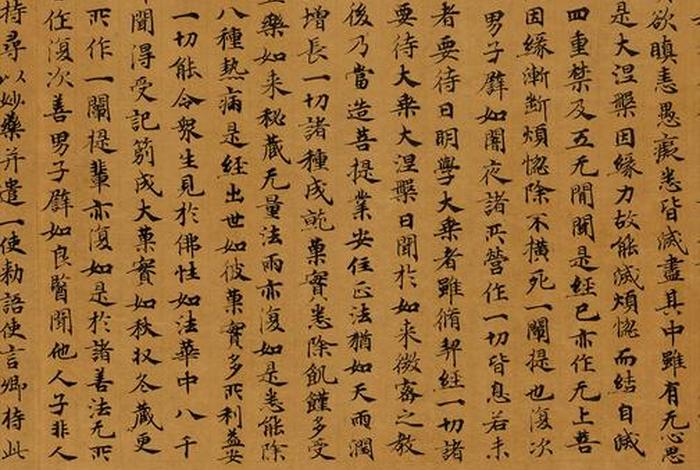 欲瞋恚愚癡悉皆滅盡其中雖有无心思
是大涅槃因緣力故能滅煩惱而結自滅
四重禁及五无間聞是經已亦作无上菩
因緣漸断煩惱除不横死一闡提也復次
男子譬如闇夜諸所營作一切皆息若未
者要待日明學大乗者雖脩契經一切諸
要待大乗大涅槃日聞於如来微密之教
後乃當造菩提業安住正法猶如天雨潤
增長一切諸種成就菓實悉除飢饉多受
樂如来秘藏无量法雨亦復如是悉能除
八種熱病是經出世如彼菓實多所利益安
一切能令衆生見於佛性如法華中八千
聞得受記莂成大菓實如秋收冬藏更
所作一闡提輩亦復如是於諸善法无所
住復次善男子譬如良醫聞他人子非人
持尋以妙藥并遣一使勑語使言卿持此